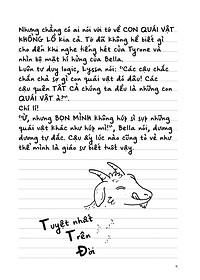 Nhưng chẳng có ai nói với tớ về CON QUÁI VẬT
KHỔNG LỒ kia cả. Tớ đã không hề biết gì
cho đến khi nghe tiếng hét của Tyrone và
nhìn bộ mặt kì hứng của Bella.
Luôn tư duy logic, Lysan nói: "Các cậu chắc
chắn chả sợ gì con quái vật đó đâu! Các
cậu quên TẤT CẢ chúng ta đều là những con
QUÁI VẬT à?".
Chí lí!
"Ừ, nhưng BỌN MÌNH không húp sì sụp những
quái vật khác như húp mì!", Bella nói, dương
dương tự đắc. Cậu ấy lúc nào cũng tỏ vẻ như
thể mình là giáo sư biết tuốt vậy.
Tuyệt nhất
Trên
Đời